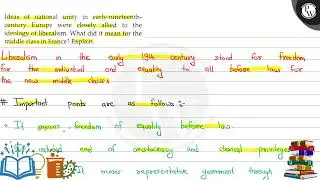 Ideas of national unity in early-nineteenth-
century Europe were closely allied to the
ideology of liberalism. What did it mean for the
middle class in France? Explain.
Liberalism in the early 19th century stood for freedom
for the individual and equality to all before laws for
the new middle classes
# Important points are as follows :-
If means freedom of equality before law
It included end of aristocracy and clerical privileges
It means representative government through